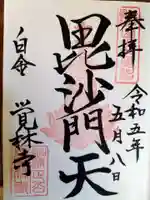 奉拝
令和五年五月八日
毘沙門天
白金
覚林寺